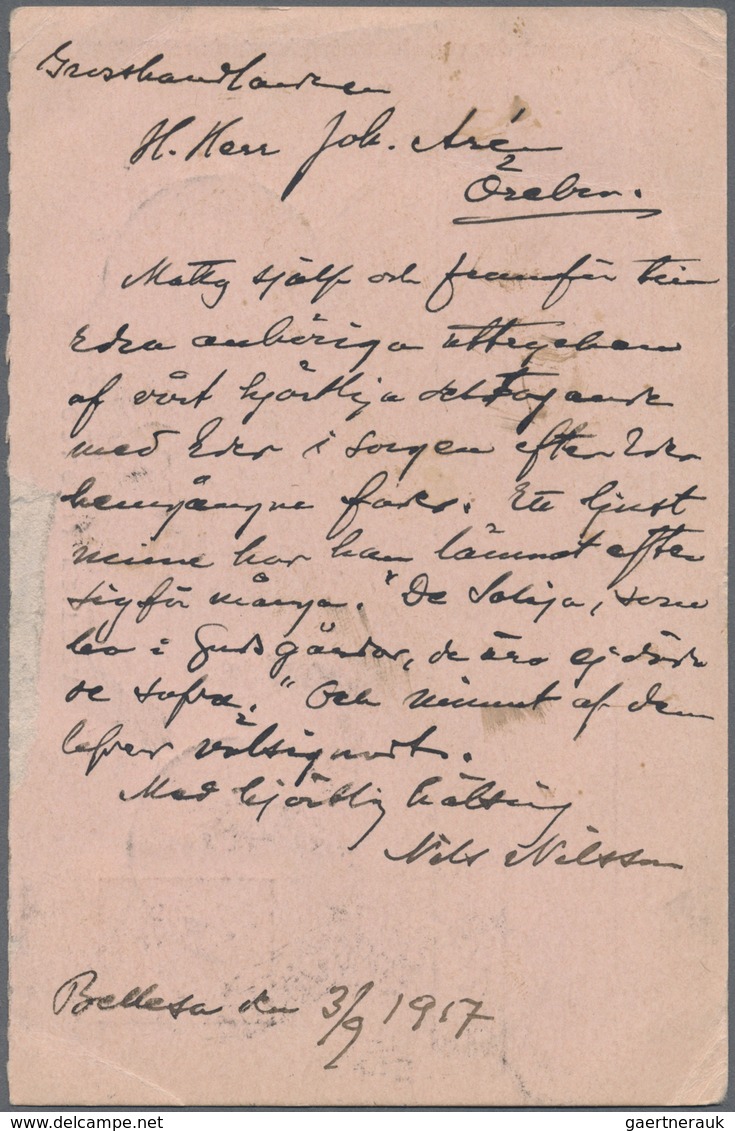 Grosshandlanden
H. Herr Joh. Arén
Örebro.
Mottg själf och framför till
Edra anhöriga uttrycken
af vårt hjärtliga deltagande
med Eder i sorgen efter Eder
hemgångne fader. Ett ljust
minne har han lämnat efter
sig för många. "De saliga, som
bo i Guds gårdar, de äro ej döda
de sofva." Och minnet af dem
lefver välsignadt.
Med hjärtlig hälsning
Nils Nilsson
den 3/9 1917
gaertnerauk